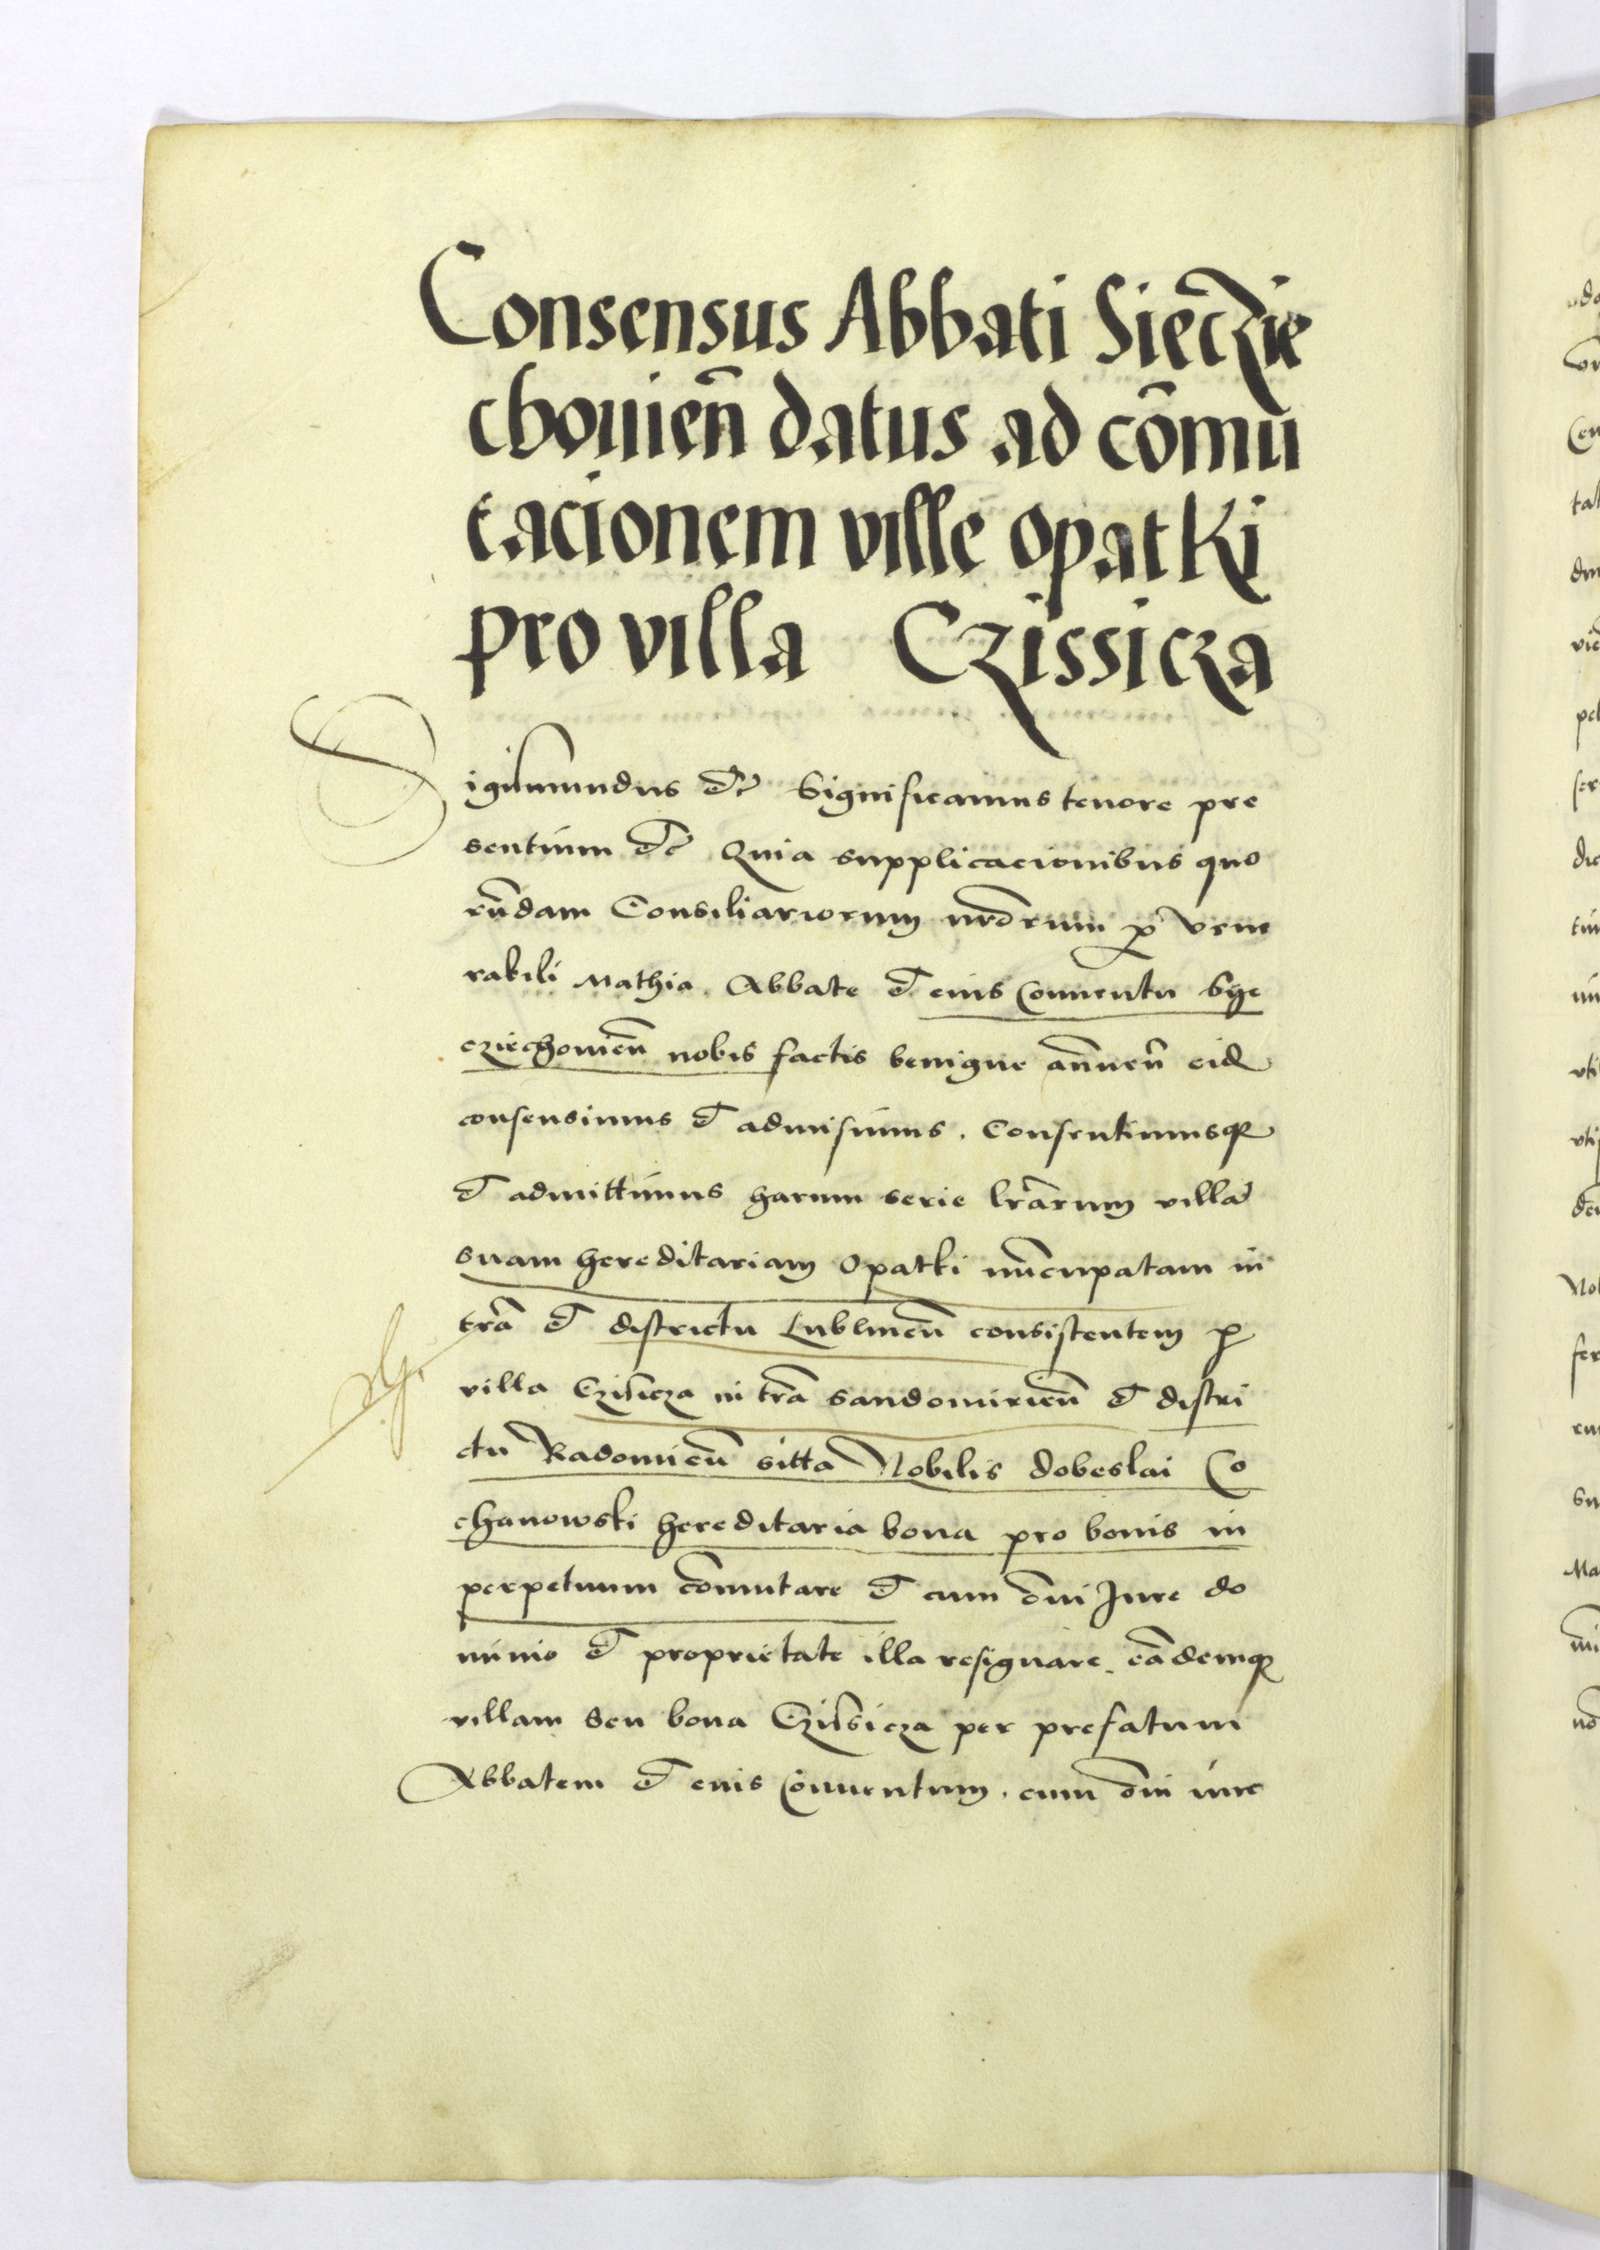 Consensus Abbati Sieczie
chouien̄ datus ad com̄u
tacionem ville opatki
pro villa Czissicza
Sigismundus etc̄ Significamus tenore pre
sentium etc̄ Quia supplicacionibus quo
rūdam Consiliariorum nr̄orum p̄ vene
rabili Mathia Abbate et eius Conuentu Sye
cziechouien̄ nobis factis benigne annuen̄ eid
consensimus et admisimus. Consentimusq
et admittimus harum serie lr̄arum villā
suam hereditariam Opatki nūcupatam in
tr̄a et districtu Lublinen̄ consistentem p
villa Czissicza in tr̄a Sandomirien̄ et distri
ctu Radomien̄ sitta Nobilis dobeslai Co
chanowski hereditaria bona pro bonis in
perpetuum cōmutare et cum om̄i Jure do
minio et proprietate illa resignare. eādemq
villam seu bona Czissicza per prefatum
Abbatem et eius Conuentum. cum om̄i iure